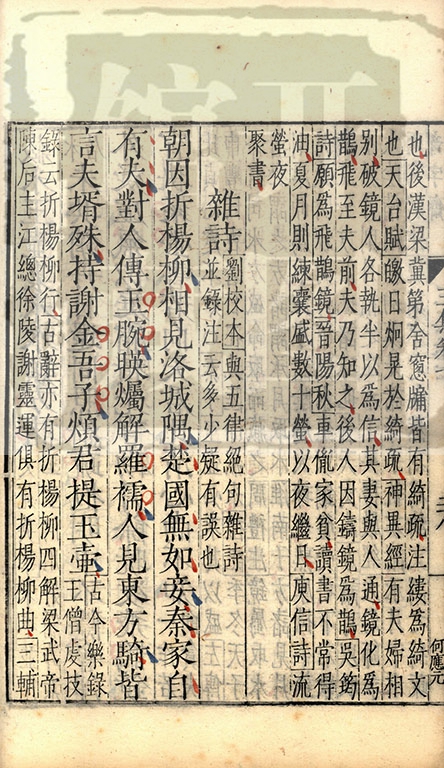 也後漢梁冀第舍窓牖皆有綺疏注縷為綺文
也天台賦皦日炯晃於綺疏神異經有夫婦相
別破鏡人各執半以為信其妻與人通鏡化為
鵲飛至夫前夫乃知之後人因鑄鏡為鵲吳鈞
詩願為飛鵲鏡晉陽秋車胤家貧讀書不常得
油夏月則練囊盛數十螢以夜繼日庾信詩流
螢夜
聚書
雜詩
劉校本與五律絕句雜詩
並錄注云多少疑有誤也
朝因折楊柳相見洛城隅楚國無如妾秦家自
有夫對人傳玉腕映燭解羅襦人見東方騎皆
言夫壻殊持謝金吾子煩君提玉壷
古今樂錄
王僧虔技
錄云折楊柳行古辭亦有折楊柳四解梁武帝
陳后主江總徐陵謝靈運俱有折楊柳曲三輔
何應元